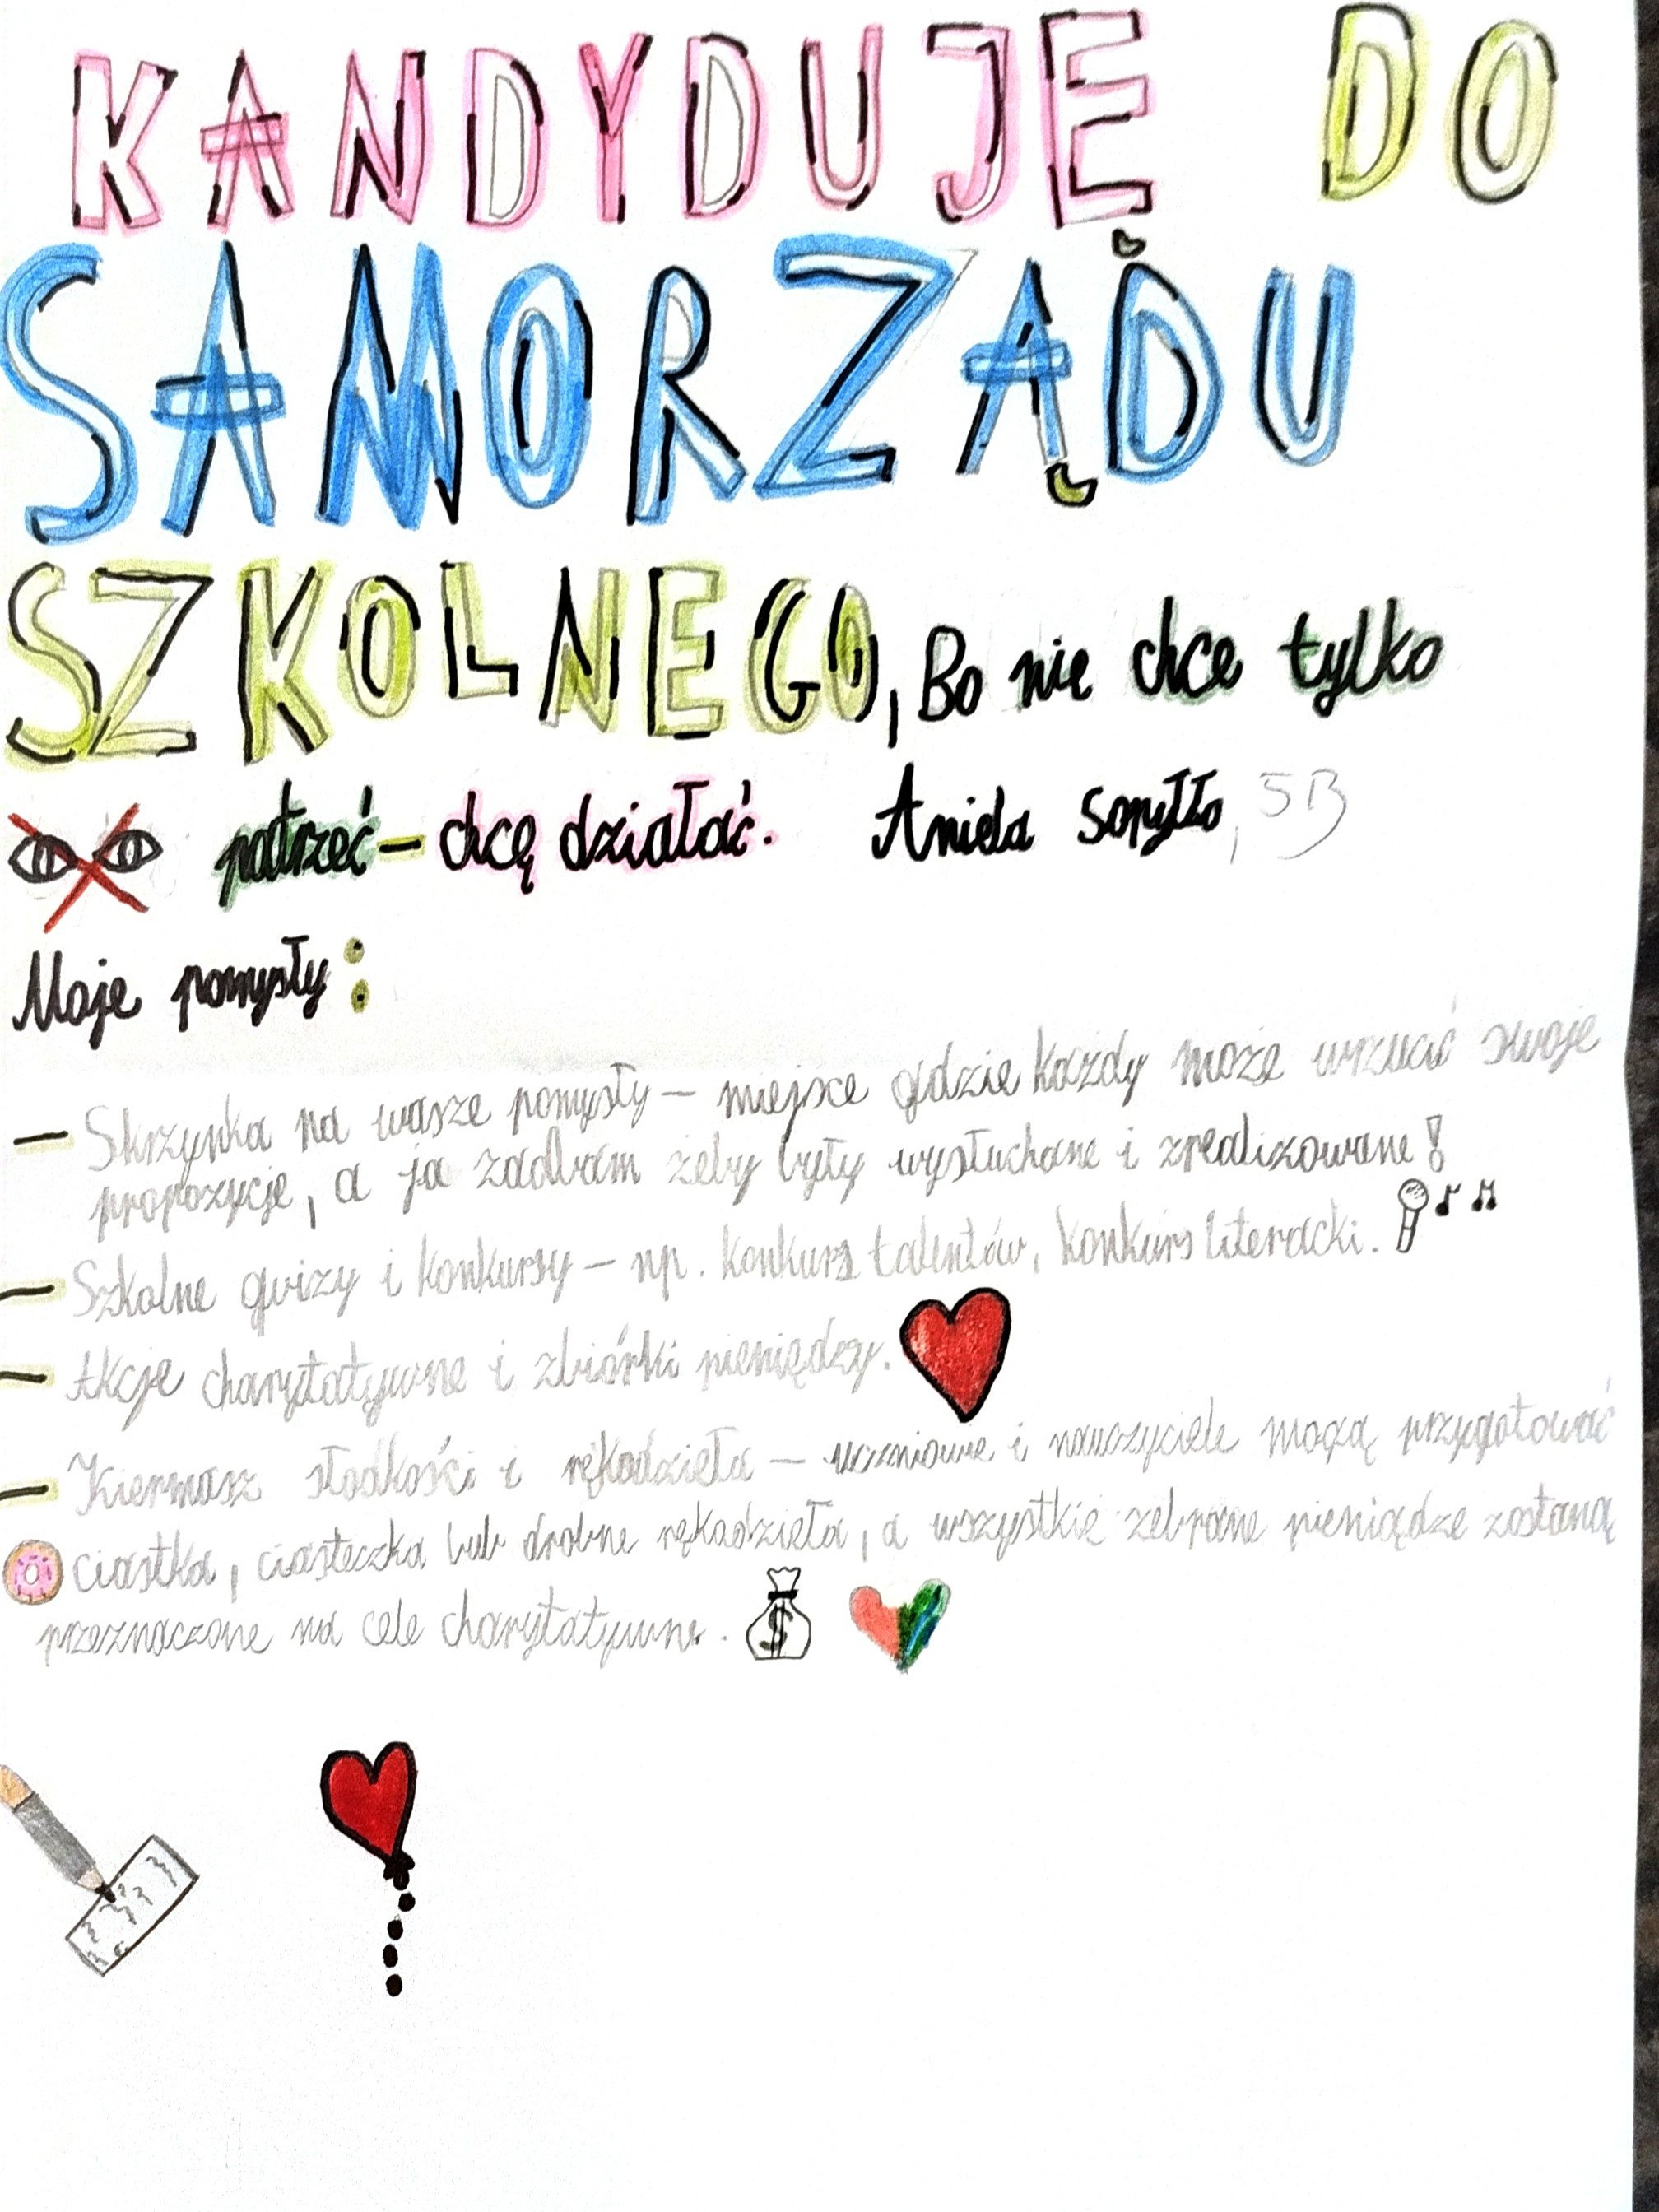 KANDYDUJĘ DO
SAMORZĄDU
SZKOLNEGO, Bo nie chcę tylko
patrzeć – chcę działać. Aniela Sopyłło, 5B
Moje pomysły:
– Skrzynka na wasze pomysły – miejsce gdzie każdy może wrzucić swoje
propozycje, a ja zadbam żeby były wysłuchane i zrealizowane!
– Szkolne quizy i konkursy – np. konkurs talentów, konkurs literacki.
– Akcje charytatywne i zbiórki pieniędzy.
– Kiermasz słodkości i rękodzieła – uczniowie i nauczyciele mogą przygotować
ciastka, ciasteczka lub drobne rękodzieła, a wszystkie zebrane pieniądze zostaną
przeznaczone na cele charytatywne.
$